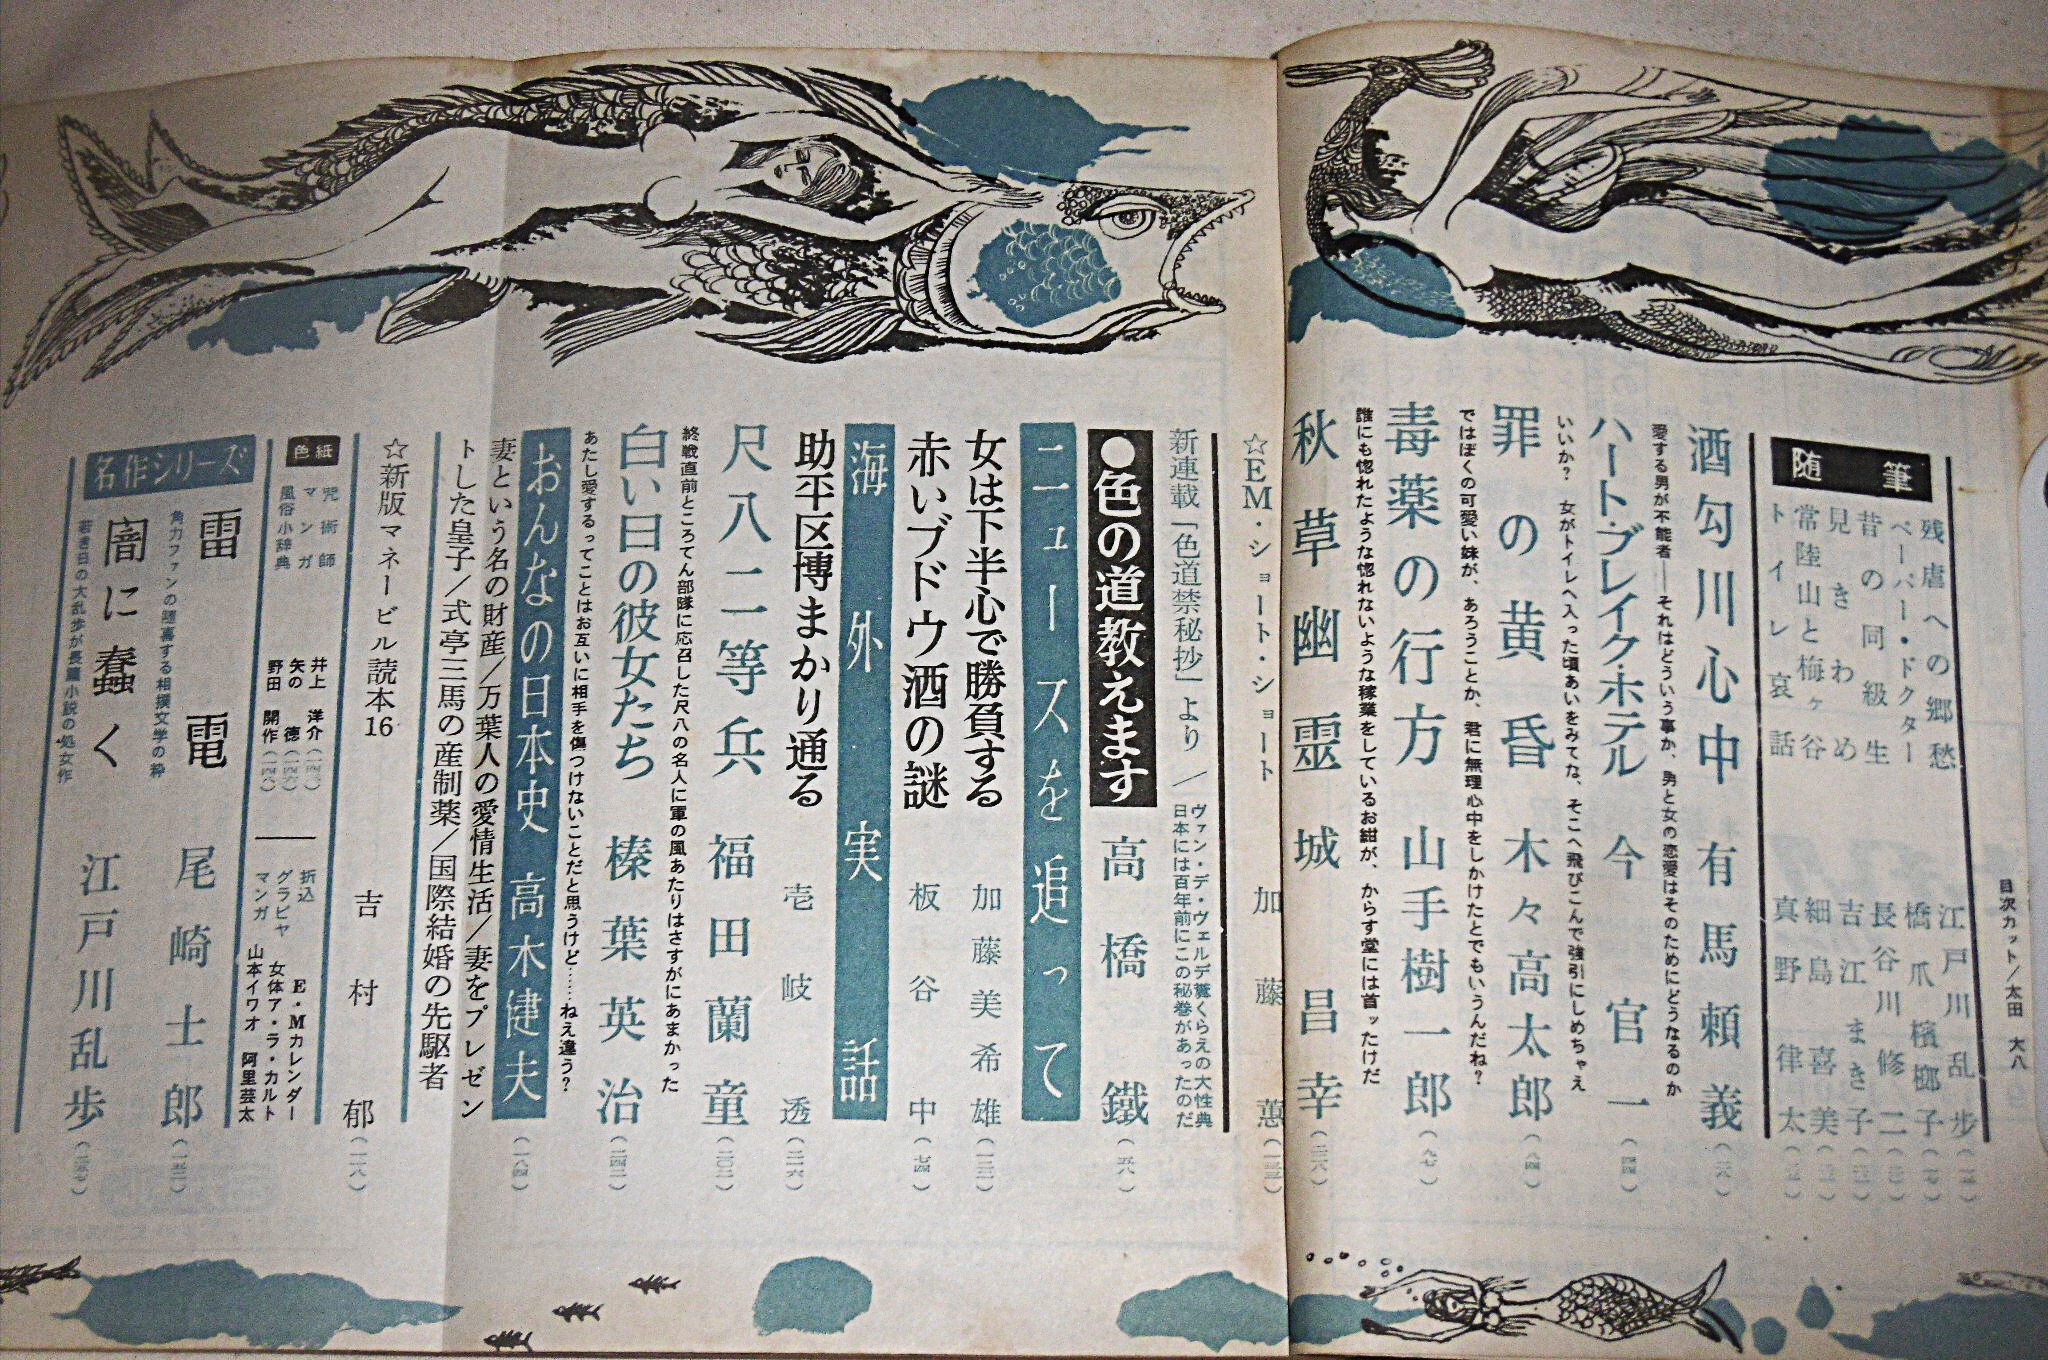 目次カット/太田 大八
随筆
残虐への郷愁 江戸川乱歩
ペーパー・ドクター 橋爪檳榔子
昔の同級生 長谷川修二
見きわめ 吉江まき子
常陸山と梅ヶ谷 細島喜美
トイレ哀話 真野律太
酒匂川心中 有馬頼義
愛する男が不能者――それはどういう事か、男と女の恋愛はそのためにどうなるのか
ハート・ブレイク・ホテル 今官一(四四)
いいか? 女がトイレへ入った頃あいをみてな、そこへ飛びこんで強引にしめちゃえ
罪の黄昏 木々高太郎(八四)
ではぼくの可愛い妹が、あろうことか、君に無理心中をしかけたとでもいうんだね?
毒薬の行方 山手樹一郎(九七)
誰にも惚れたような惚れないような稼業をしているお紺が、からす堂には首ッたけだ
秋草幽霊 城昌幸
☆EM・ショート・ショート 加藤薫
新連載「色道禁秘抄」より/ヴァン・デ・ヴェルデ糞くらえの大性典
日本には百年前にこの秘巻があったのだ
●色の道教えます 高橋鐵
ニュースを追って
女は下半心で勝負する 加藤美希雄
赤いブドウ酒の謎 板谷中(七四)
海外実話
助平区博まかり通る 壱岐透
尺八二等兵 福田蘭童
終戦直前ところてん部隊に応召した尺八の名人に軍の風あたりはさすがにあまかった
白い日の彼女たち 榛葉英治
あたし愛するってことはお互いに相手を傷つけないことだと思うけど……ねえ違う?
おんなの日本史 高木健夫(一八四)
妻という名の財産/万葉人の愛情生活/妻をプレゼン
トした皇子/式亭三馬の産制薬/国際結婚の先駆者
☆新版マネービル読本16 吉村郁(一一八)
色紙
呪術師 井上洋介
マンガ 矢の徳
風俗小辞典 野田開作
折込 E・Mカレンダー
グラビヤ 女体ア・ラ・カルト
マンガ 山本イワオ 阿里芸太
名作シリーズ
雷電 尾崎士郎
角力ファンの随喜する相撲文学の粋
闇に蠢く 江戸川乱歩
若き日の大乱歩が長篇小説の処女作